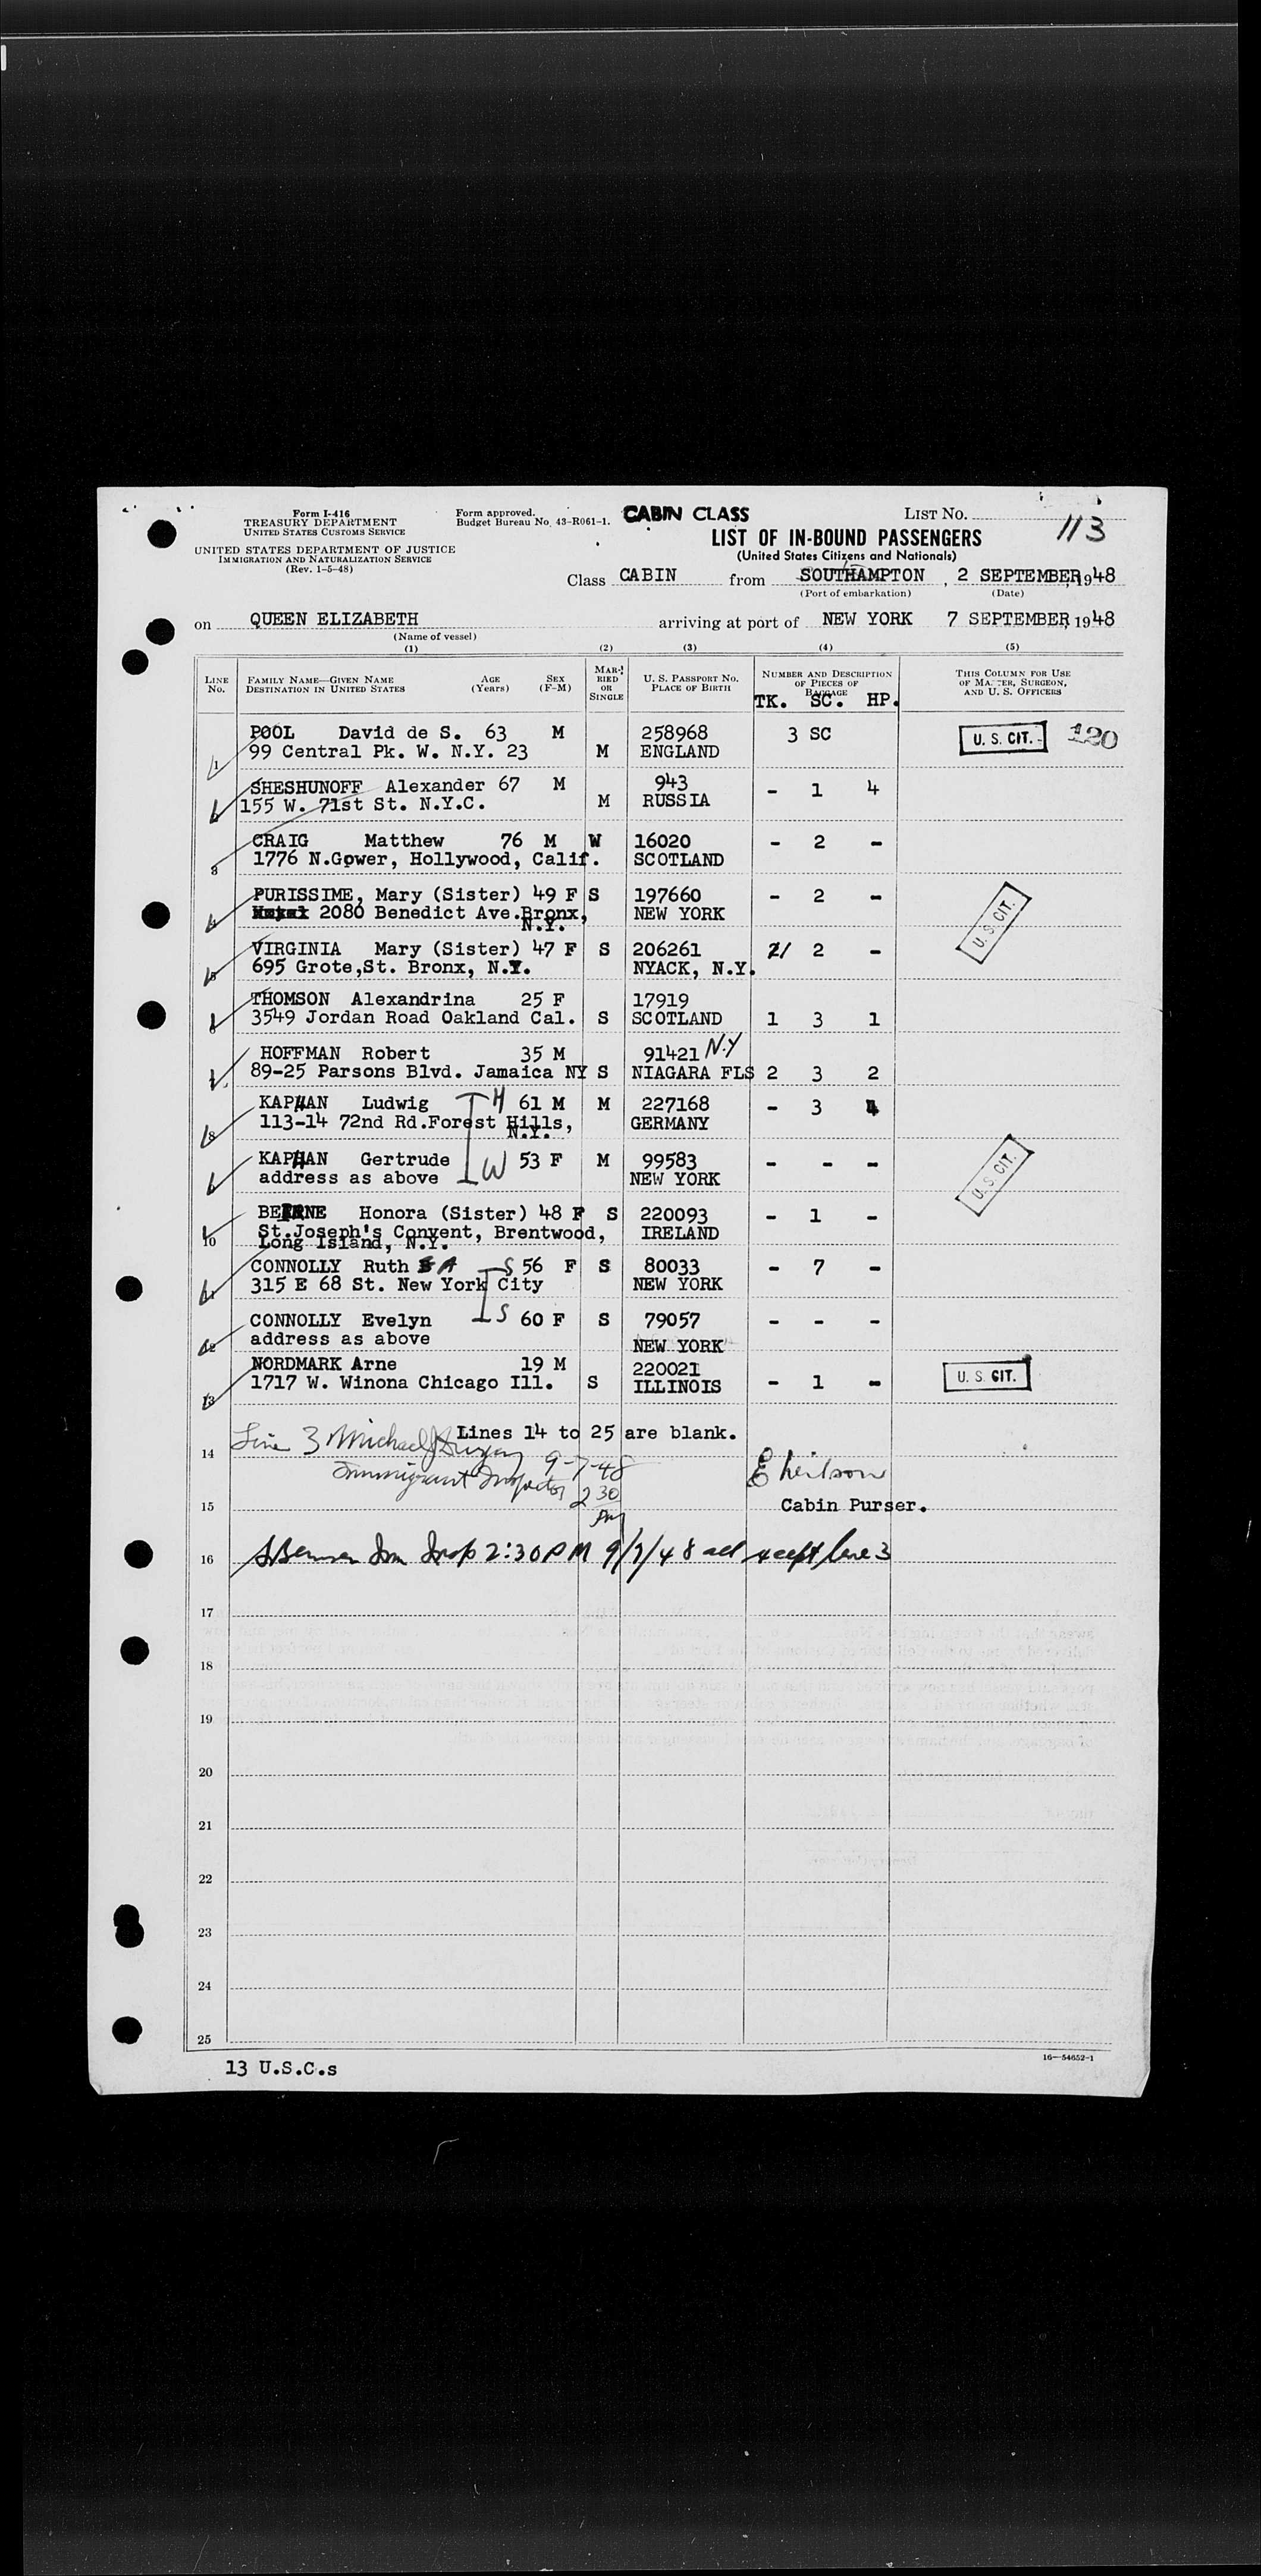 Form I-416
TREASURY DEPARTMENT
UNITED STATES CUSTOMS SERVICE
UNITED STATES DEPARTMENT OF JUSTICE
IMMIGRATION AND NATURALIZATION SERVICE
(Rev. 1-5-48)
Form approved.
Budget Bureau No. 43-R061-1.
CABIN CLASS
LIST NO.
113
LIST OF IN-BOUND PASSENGERS
(United States Citizens and Nationals)
Class CABIN from SOUTHAMPTON, 2 SEPTEMBER, 1948
(Port of embarkation) (Date)
on QUEEN ELIZABETH arriving at port of NEW YORK 7 SEPTEMBER, 1948
(Name of vessel)
(1) (2) (3) (4) (5)
LINE NO. FAMILY NAME—GIVEN NAME DESTINATION IN UNITED STATES AGE (Years) SEX (F-M) MARRIED OR SINGLE U. S. PASSPORT NO. PLACE OF BIRTH NUMBER AND DESCRIPTION OF PIECES OF BAGGAGE THIS COLUMN FOR USE OF MASTER, SURGEON, AND U. S. OFFICERS
TK. SC. HP.
POOL David de S. 63 M 258968 3 SC U. S. CIT. 120
1 99 Central Pk. W. N.Y. 23 M ENGLAND
SHESHUNOFF Alexander 67 M 943 - 1 4
2 155 W. 71st St. N.Y.C. M RUSSIA
CRAIG Matthew 76 M W 16020 - 2 -
3 1776 N.Gower, Hollywood, Calif. SCOTLAND
PURISSIME, Mary (Sister) 49 F S 197660 - 2 -
4 2080 Benedict Ave.Bronx, N.Y. NEW YORK U. S. CIT.
VIRGINIA Mary (Sister) 47 F S 206261 1 2 -
5 695 Grote,St. Bronx, N.Y. NYACK, N.Y.
THOMSON Alexandrina 25 F 17919
6 3549 Jordan Road Oakland Cal. S SCOTLAND 1 3 1
HOFFMAN Robert 35 M 91421 N.Y
7 89-25 Parsons Blvd. Jamaica NY S NIAGARA FLS 2 3 2
KAPHAN Ludwig H 61 M M 227168 - 3 4
8 113-14 72nd Rd.Forest Hills, N.Y. GERMANY
KAPHAN Gertrude W 53 F M 99583 - - -
9 address as above NEW YORK U. S. CIT.
BEIRNE Honora (Sister) 48 F S 220093 - 1 -
10 St.Joseph's Convent, Brentwood, IRELAND
Long Island, N.Y.
CONNOLLY Ruth A S 56 F S 80033 - 7 -
11 315 E 68 St. New York City NEW YORK
CONNOLLY Evelyn S 60 F S 79057 - - -
12 address as above NEW YORK
NORDMARK Arne 19 M 220021
13 1717 W. Winona Chicago Ill. S ILLINOIS - 1 - U. S. CIT.
Lines 14 to 25 are blank.
14 Line 3 Michael
Immigrant Inspector 9-7-48
2 30 pm
E Neilson
15 Cabin Purser.
16 Imm Insp 2:30 PM 9/7/48 all except line 3
17
18
19
20
21
22
23
24
25
13 U.S.C.s
16—54652-1